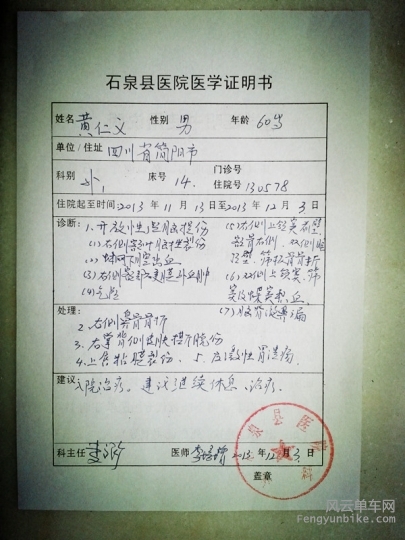 石泉县医院医学证明书
姓名 黄仁义 性别 男 年龄 60岁
单位/住址 四川省简阳市
科别 外1 床号 14. 门诊号
住院号 130578
住院起至时间:2013年11月13日至2013年12月3日
诊断: 1.开放性颅脑损伤
(1)右侧额叶脑挫裂伤
(2)蛛网下腔出血
(3)右侧硬膜外血肿
(4)气颅
(5)右侧上颌窦
筛板骨骨折
(6)双侧上颌窦、筛
窦及蝶窦积血
(7)脑脊液鼻漏
处理: 2.右侧鼻骨骨折
3.右掌背侧皮肤损伤
4.上唇粘膜裂伤. 5.应激性胃溃疡
建议: 入院治疗. 建议继续休息、治疗.
科主任
医师 2013.12月3日
盖章
泉县医
风云单车网
Fengyunbike.com